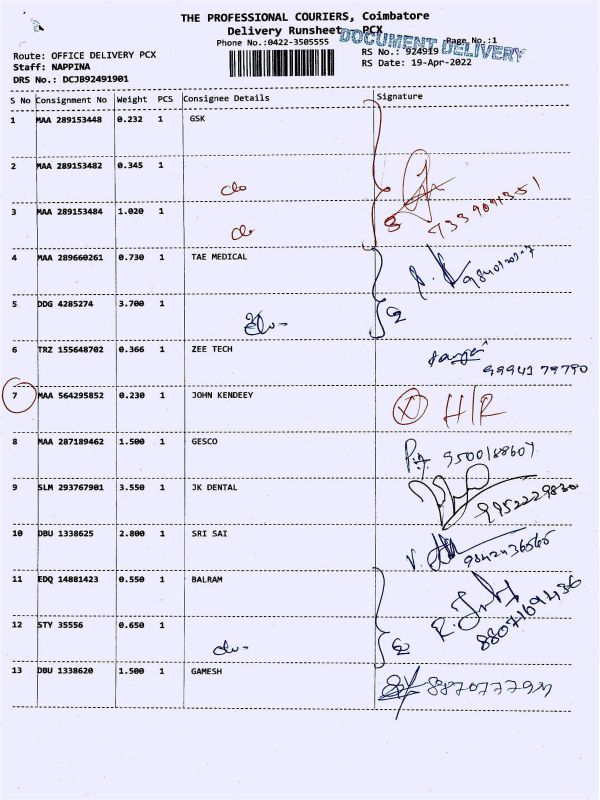 THE PROFESSIONAL COURIERS, Coimbatore
Delivery Runsheet PCX
Phone No.:0422-3505555
DOCUMENT DELIVERY
Page No.:1
Route: OFFICE DELIVERY PCX
RS No.: 924919
Staff: NAPPINA
RS Date: 19-Apr-2022
DRS No.: DCJB92491901
S No Consignment No Weight PCS Consignee Details Signature
1 MAA 289153448 0.232 1 GSK
2 MAA 289153482 0.345 1
3 MAA 289153484 1.020 1
4 MAA 289660261 0.730 1 TAE MEDICAL
5 DDG 4285274 3.700 1
6 TRZ 155648702 0.366 1 ZEE TECH
99941 79790
7 MAA 564295852 0.230 1 JOHN KENDEEY
8 MAA 287189462 1.500 1 GESCO
9 SLM 293767901 3.550 1 JK DENTAL
9952229830
10 DBU 1338625 2.800 1 SRI SAI
11 EDQ 14881423 0.550 1 BALRAM
12 STY 35556 0.650 1
13 DBU 1338620 1.500 1 GAMESH